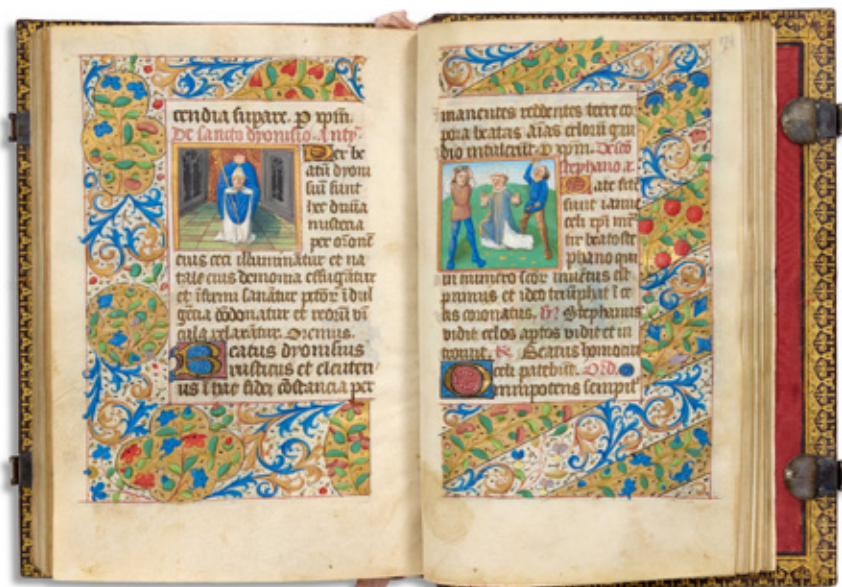 cendia supare. P xpm.
De sancto dyonisio. Antꝰ.
Per be
atū dyoni
siū sunt
hec diuīa
misteria
per oronē
cuius ceci illuminātur et na
tale eius demonia effugātur
et īfirmi sanātur pctōr idul
gētia dōdonatur et reorū vī
cula relaxātur. Oremus.
Beatus dyonisius
rusticus et eleuteri
us ī tue fidei cōstancia per
manentes reddentes terre cor
pora beatas aīas celorū gau
dio intulerūt. P xpm. De scō
stephano. a.
tate
sunt ianue
celi xpi mr̄
tir beato ste
phano qui
in numero scōr inuētus est
primus et ideo triūphat ī ce
lis coronatus. Stephanus
vidit celos aptos vidit et in
troiuit. Beatus homo cui
celi patebāt. Orō.
Omnipotens sempit̄